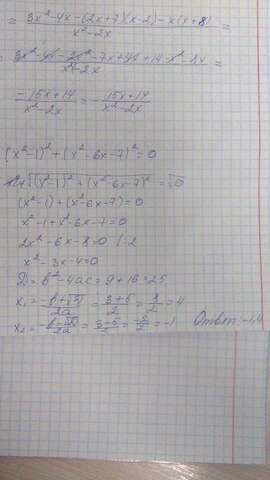 = 3x²-4x-(2x+7)(x-2)-x(x+8) / x²-2x =
3x²-4x-2x²-7x+4x+14-x²-8x / x²-2x =
-15x+14 / x²-2x = -15x+14 / x²-2x
(x²-1)²+(x²-6x-7)²=0
√(x²-1)²+(x²-6x-7)² = √0
(x²-1)+(x²-6x-7)=0
x²-1+x²-6x-7=0
2x²-6x-8=0 |:2
x²-3x-4=0
D=b²-4ac=9+16=25
x₁=-b+√D/2a=3+5/2=8/2=4
x₂=-b-√D/2a=3-5/2=-2/2=-1 Ответ -1,4